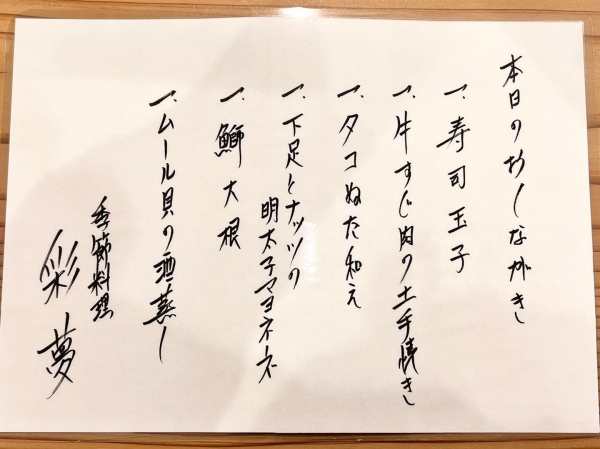 本日のおしながき
一、寿司玉子
一、牛すじ肉の土手焼き
一、タコぬた和え
一、下足とナッツの
明太子マヨネーズ
一、鰤大根
一、ムール貝の酒蒸し
季節料理
彩夢